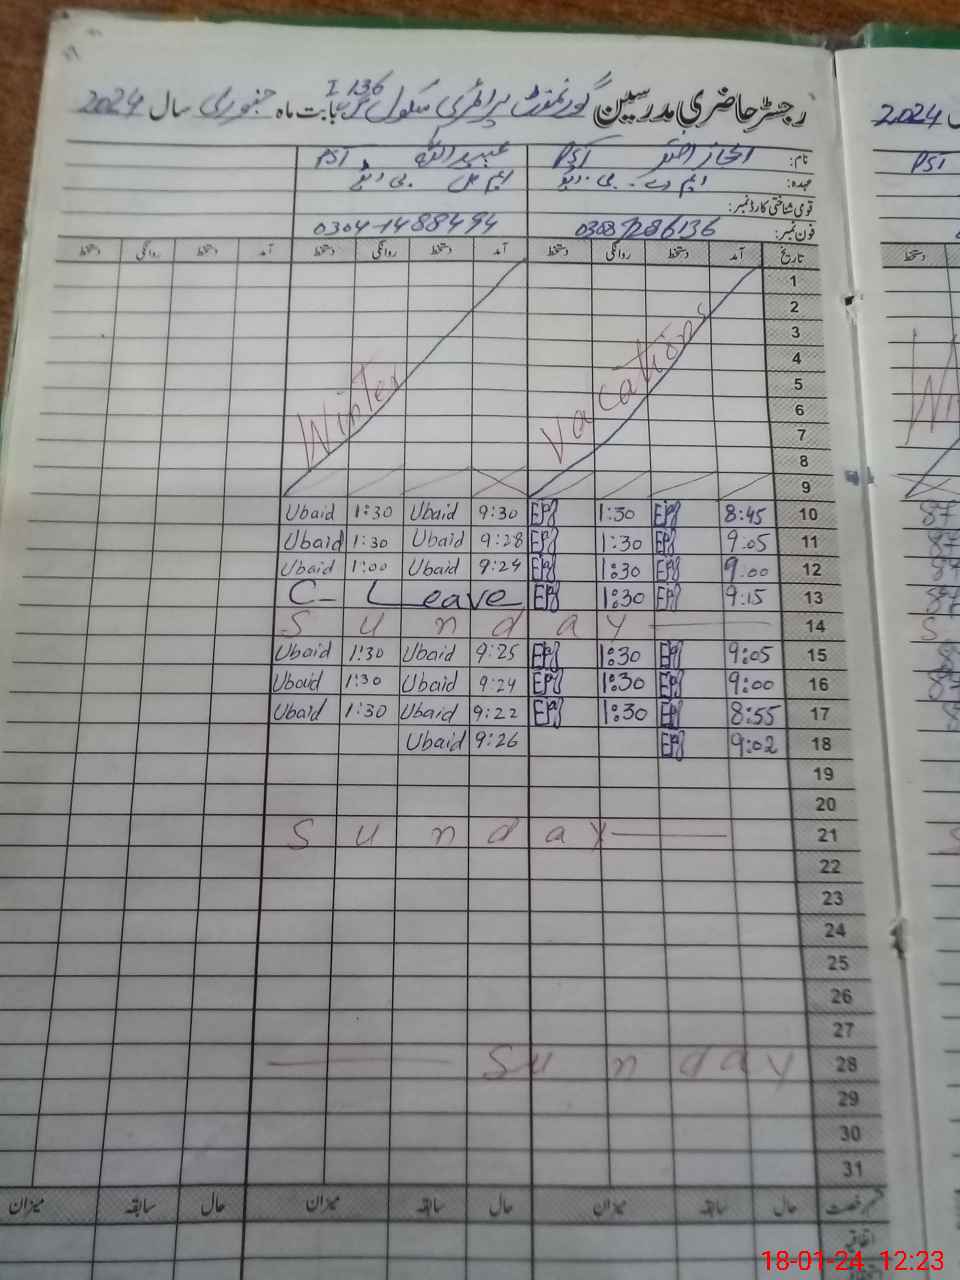 رجسٹر حاضری مدرسین گورنمنٹ پرائمری سکول بابت ماہ جنوری سال 2024
I 136
2024
نام: PST عبید اللہ PST
PST
عہدہ:
قومی شناختی کارڈ نمبر:
فون نمبر: 0304-1488494
تاریخ آمد دستخط روانگی دستخط آمد دستخط روانگی دستخط آمد دستخط روانگی دستخط
دستخط
1
2
3
4
5
6
7
8
9
Winter Vacations
Ubaid 1:30 Ubaid 9:30 1:30 8:45 10
Ubaid 1:30 Ubaid 9:28 1:30 9:05 11
Ubaid 1:00 Ubaid 9:24 1:30 9:00 12
C- Leave 1:30 9:15 13
Sunday 14
Ubaid 1:30 Ubaid 9:25 1:30 9:05 15
Ubaid 1:30 Ubaid 9:24 1:30 9:00 16
Ubaid 1:30 Ubaid 9:22 1:30 8:55 17
Ubaid 9:26 9:02 18
19
20
Sunday 21
22
23
24
25
26
27
Sunday 28
29
30
31
حال سابقہ میزان حال سابقہ میزان حال سابقہ میزان
اتفاقیہ
18-01-24 12:23